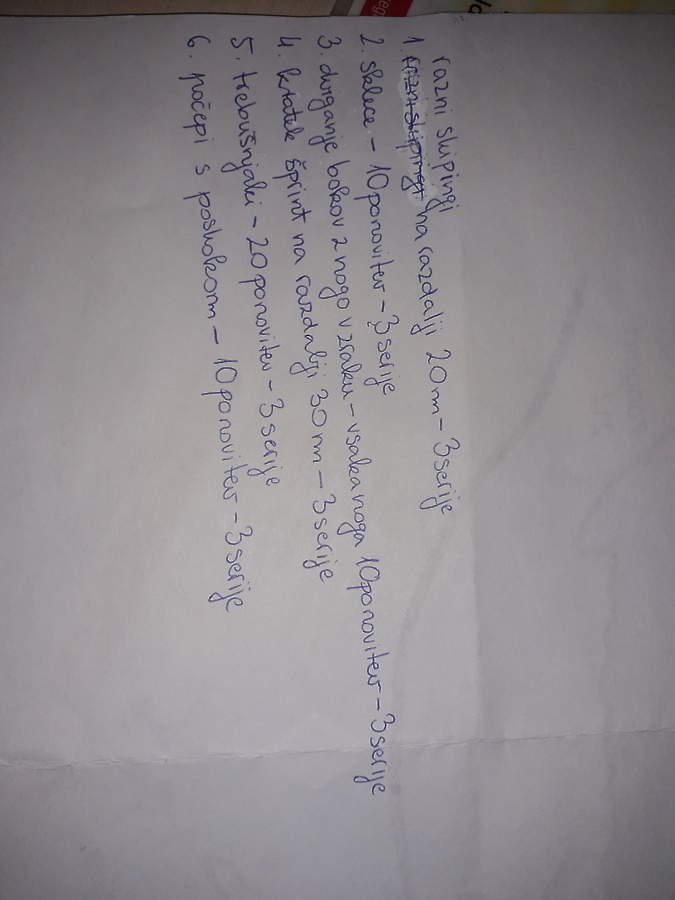 razni skipingi
1. razni skipingi na razdalji 20m - 3 serije
2. sklece - 10 ponovitev - 3 serije
3. dviganje bokov z nogo v zraku - vsaka noga 10 ponovitev - 3 serije
4. kratek šprint na razdalji 30m - 3 serije
5. trebušnjaki - 20 ponovitev - 3 serije
6. počepi s poskokom - 10 ponovitev - 3 serije